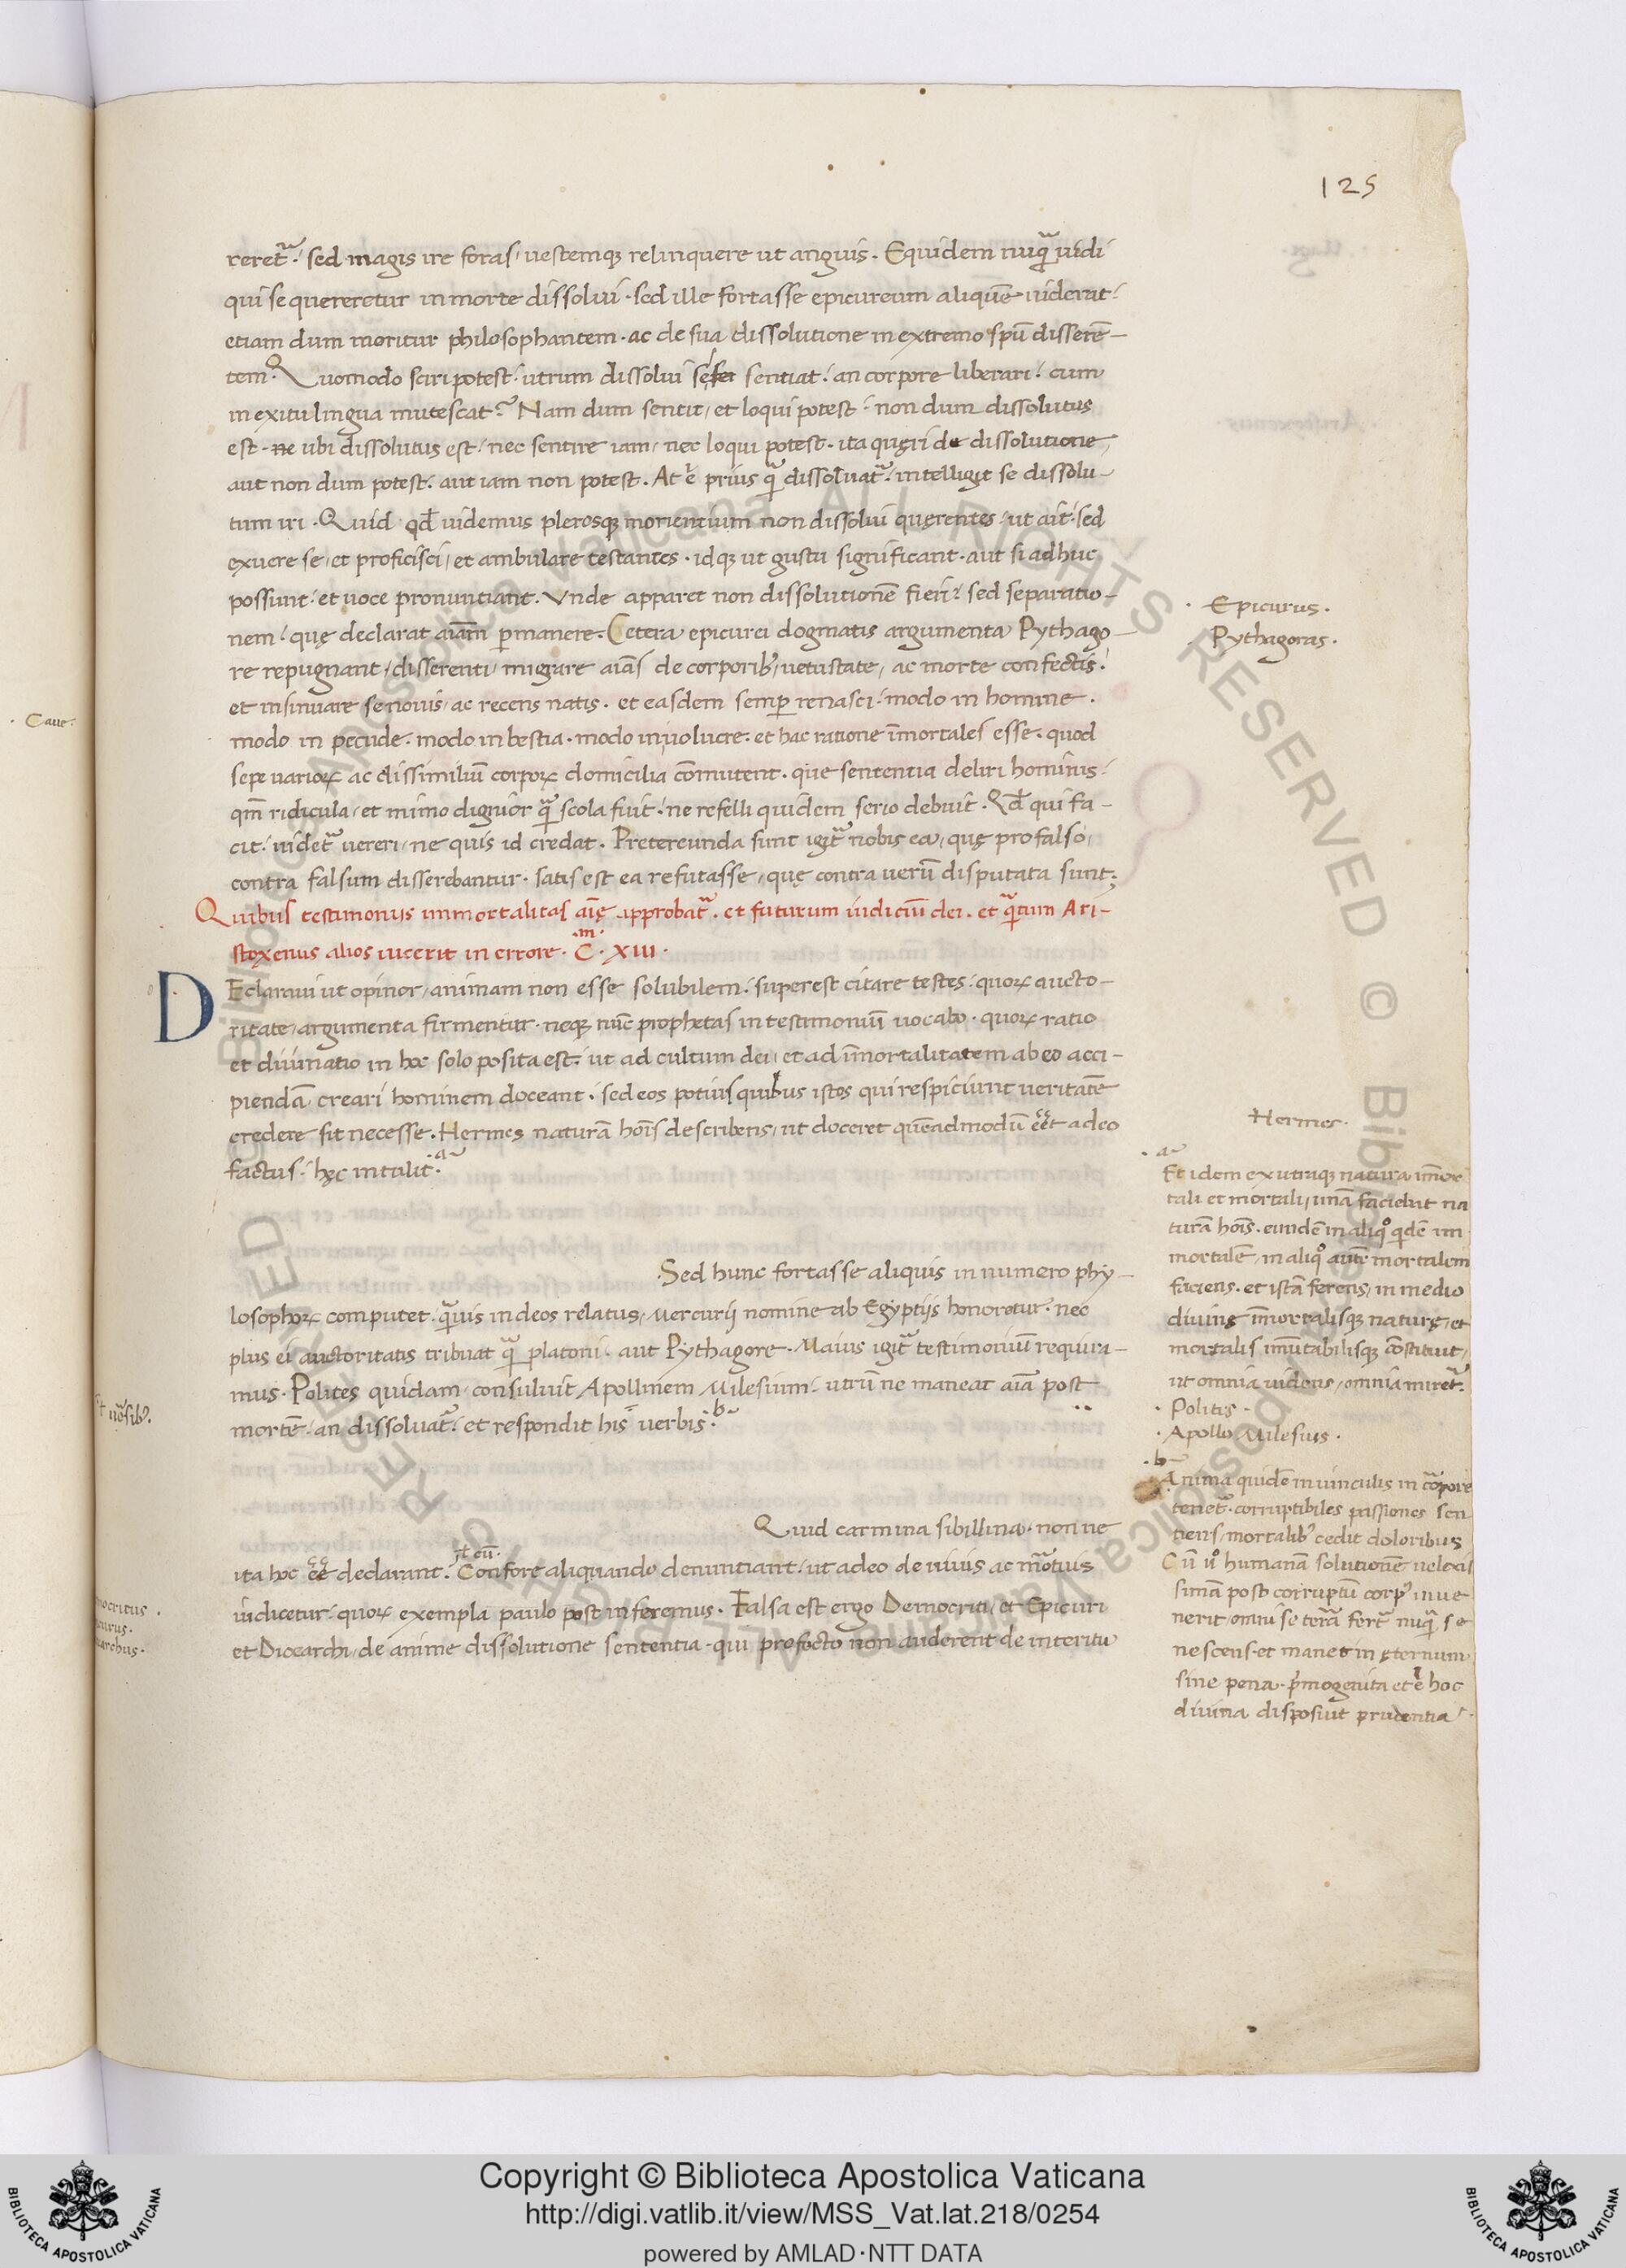 125
reret᷒. sed magis ire foras, uestemq; relinquere ut anguis. Equidem nuq̃ uidi
qui se quereretur in morte dissolui. sed ille fortasse epicureum aliquē uiderat.
etiam dum moritur philosophantem. ac de sua dissolutione in extremo spū disserē-
tem. Quomodo sciri potest. utrum dissolui se sentiat. an corpore liberari. cum
in exitu lingua mutescat? Nam dum sentit, et loqui potest. non dum dissolutus
est. ubi dissolutus est. nec sentire iam, nec loqui potest. ita quęri de dissolutione,
aut non dum potest. aut iam non potest. At ē prius q̃ dissoluat᷒. intelligit se dissolu-
tum iri. Quid qđ uidemus plerosq; morientium non dissolui quęrentes. ut ait. sed
exuere se, et proficisci, et ambulare testantes. idq; ut gustu significant. aut si adhuc
possunt. et uoce pronuntiant. Vnde apparet non dissolutionē fieri. sed separatio-
nem. quę declarat aīam p̱manere. Cetera epicurei dogmatis argumenta Pythago-
re repugnant, disserenti migrare aīas de corporib; uetustate, ac morte confectis.
et insinuare se nouis, ac recens natis. et easdem semp̱ renasci. modo in homine.
modo in pecude. modo in bestia. modo in uolucre. et hac ratione īmortales esse. quod
sepe uarioꝝ ac dissimiliū corpoꝝ domicilia cōmutent. que sententia deliri hominis.
qm̄ ridicula, et mimo dignior q̃ scola fuit. ne refelli quidem serio debuit. Qđ qui fa-
cit. uidet᷒ uereri, ne quis id credat. Pretereunda sunt igit᷒ nobis ea, quę pro falso,
contra falsum disserebantur. satis est ea refutasse, quę contra uerū disputata sunt.
Quibus testimoniis immortalitas aīę approbat᷒. et futurum iudiciū dei. et q̃tum Ari-
stoxenus alios iucerit in errore. C.m XIII.
DEclaraui ut opinor, animam non esse solubilem. superest citare testes. quoꝝ aucto-
ritate, argumenta firmentur. neq; nūc prophetas in testimoniū uocabo. quoꝝ ratio
et diuinatio in hoc solo posita est. ut ad cultum dei, et ad īmortalitatem ab eo acci-
piendā creari hominem doceant. sed eos potius quibus istos qui respiciunt ueritatē
credere sit necesse. Hermes naturā hoīs describens, ut doceret quēadmodū eēt a deo
factus. hęc intulit. a
Sed hunc fortasse aliquis in numero phy-
losophoꝝ computet. q̃uis in deos relatus, Mercurij nomine ab Egyptijs honoretur. nec
plus ei auctoritatis tribuat q̃ platoni. aut Pythagore. Maius igit᷒ testimoniū requira-
mus. Polites quidam consuluit Apollinem Milesium. utrū ne maneat aīa post
mortē. an dissoluat᷒. et respondit his uerbis. b
Quid carmina sibillina. non ne
ita hoc eē declarant. Con fore aliquando denuntiant. ut a deo de uiuis ac mortuis
iudicetur. quoꝝ exempla paulo post inferemus. Falsa est ergo Democriti, et Epicuri
et Dicearchi, de anime dissolutione sententia. qui profecto non auderent de interitu
Epicurus.
Pythagoras.
Hermes.
a
Et idem ex utraq; natura īmor
tali et mortali, unā faciebat na
turā hoīs. eundē in aliq° qdē im
mortalē, in aliq° autē mortalem
faciens. et istā ferens, in medio
diuinę īmortalisq; naturę, et
mortalis imutabilisq; cōstituit,
ut omnia uidens, omnia miret᷒.
Politis.
Apollo Milesius.
b
Anima quidē in uinculis in corpore
tenet᷒. corruptibiles passiones sen
tiens, mortalib; cedit doloribus
Cū u° humanā solutionē uelocis
simā post corruptū corp; inue
nerit, omni se terā fert᷒ nuq̃ se
nescens. et manet in ęternum
sine pena. p̄mogenita et ē hoc
diuina disposuit prudentia.
Caue.